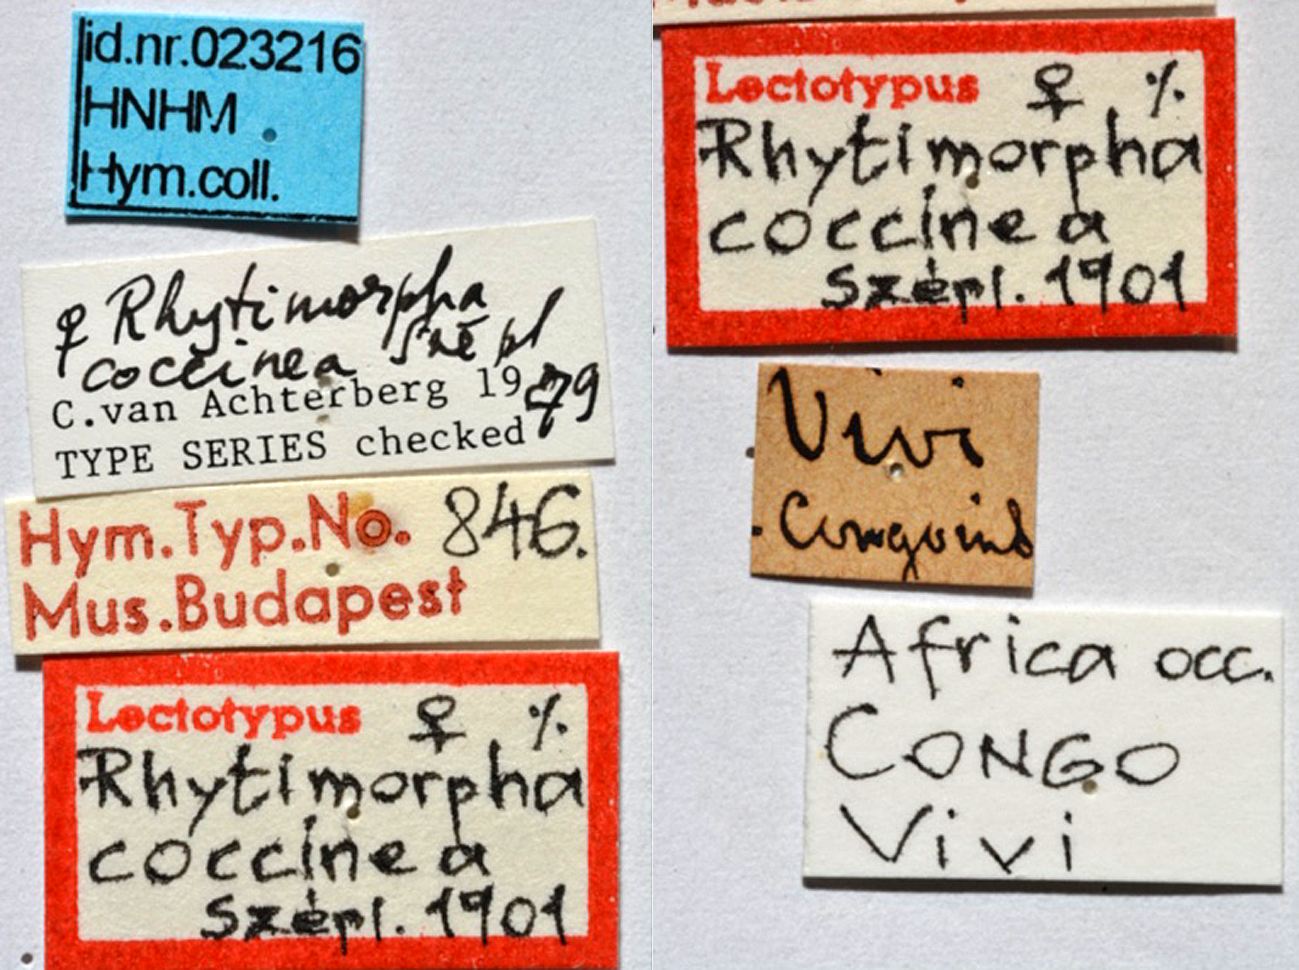 id.nr.023216
HNHM
Hym.coll.
♀ Rhytimorpha
coccinea Szépl
C.van Achterberg 1979
TYPE SERIES checked
Hym.Typ.No. 846.
Mus.Budapest
Lectotypus ♀ %
Rhytimorpha
coccinea
Szépl. 1901
Lectotypus ♀ %
Rhytimorpha
coccinea
Szépl. 1901
Vivi
Africa occ.
CONGO
Vivi